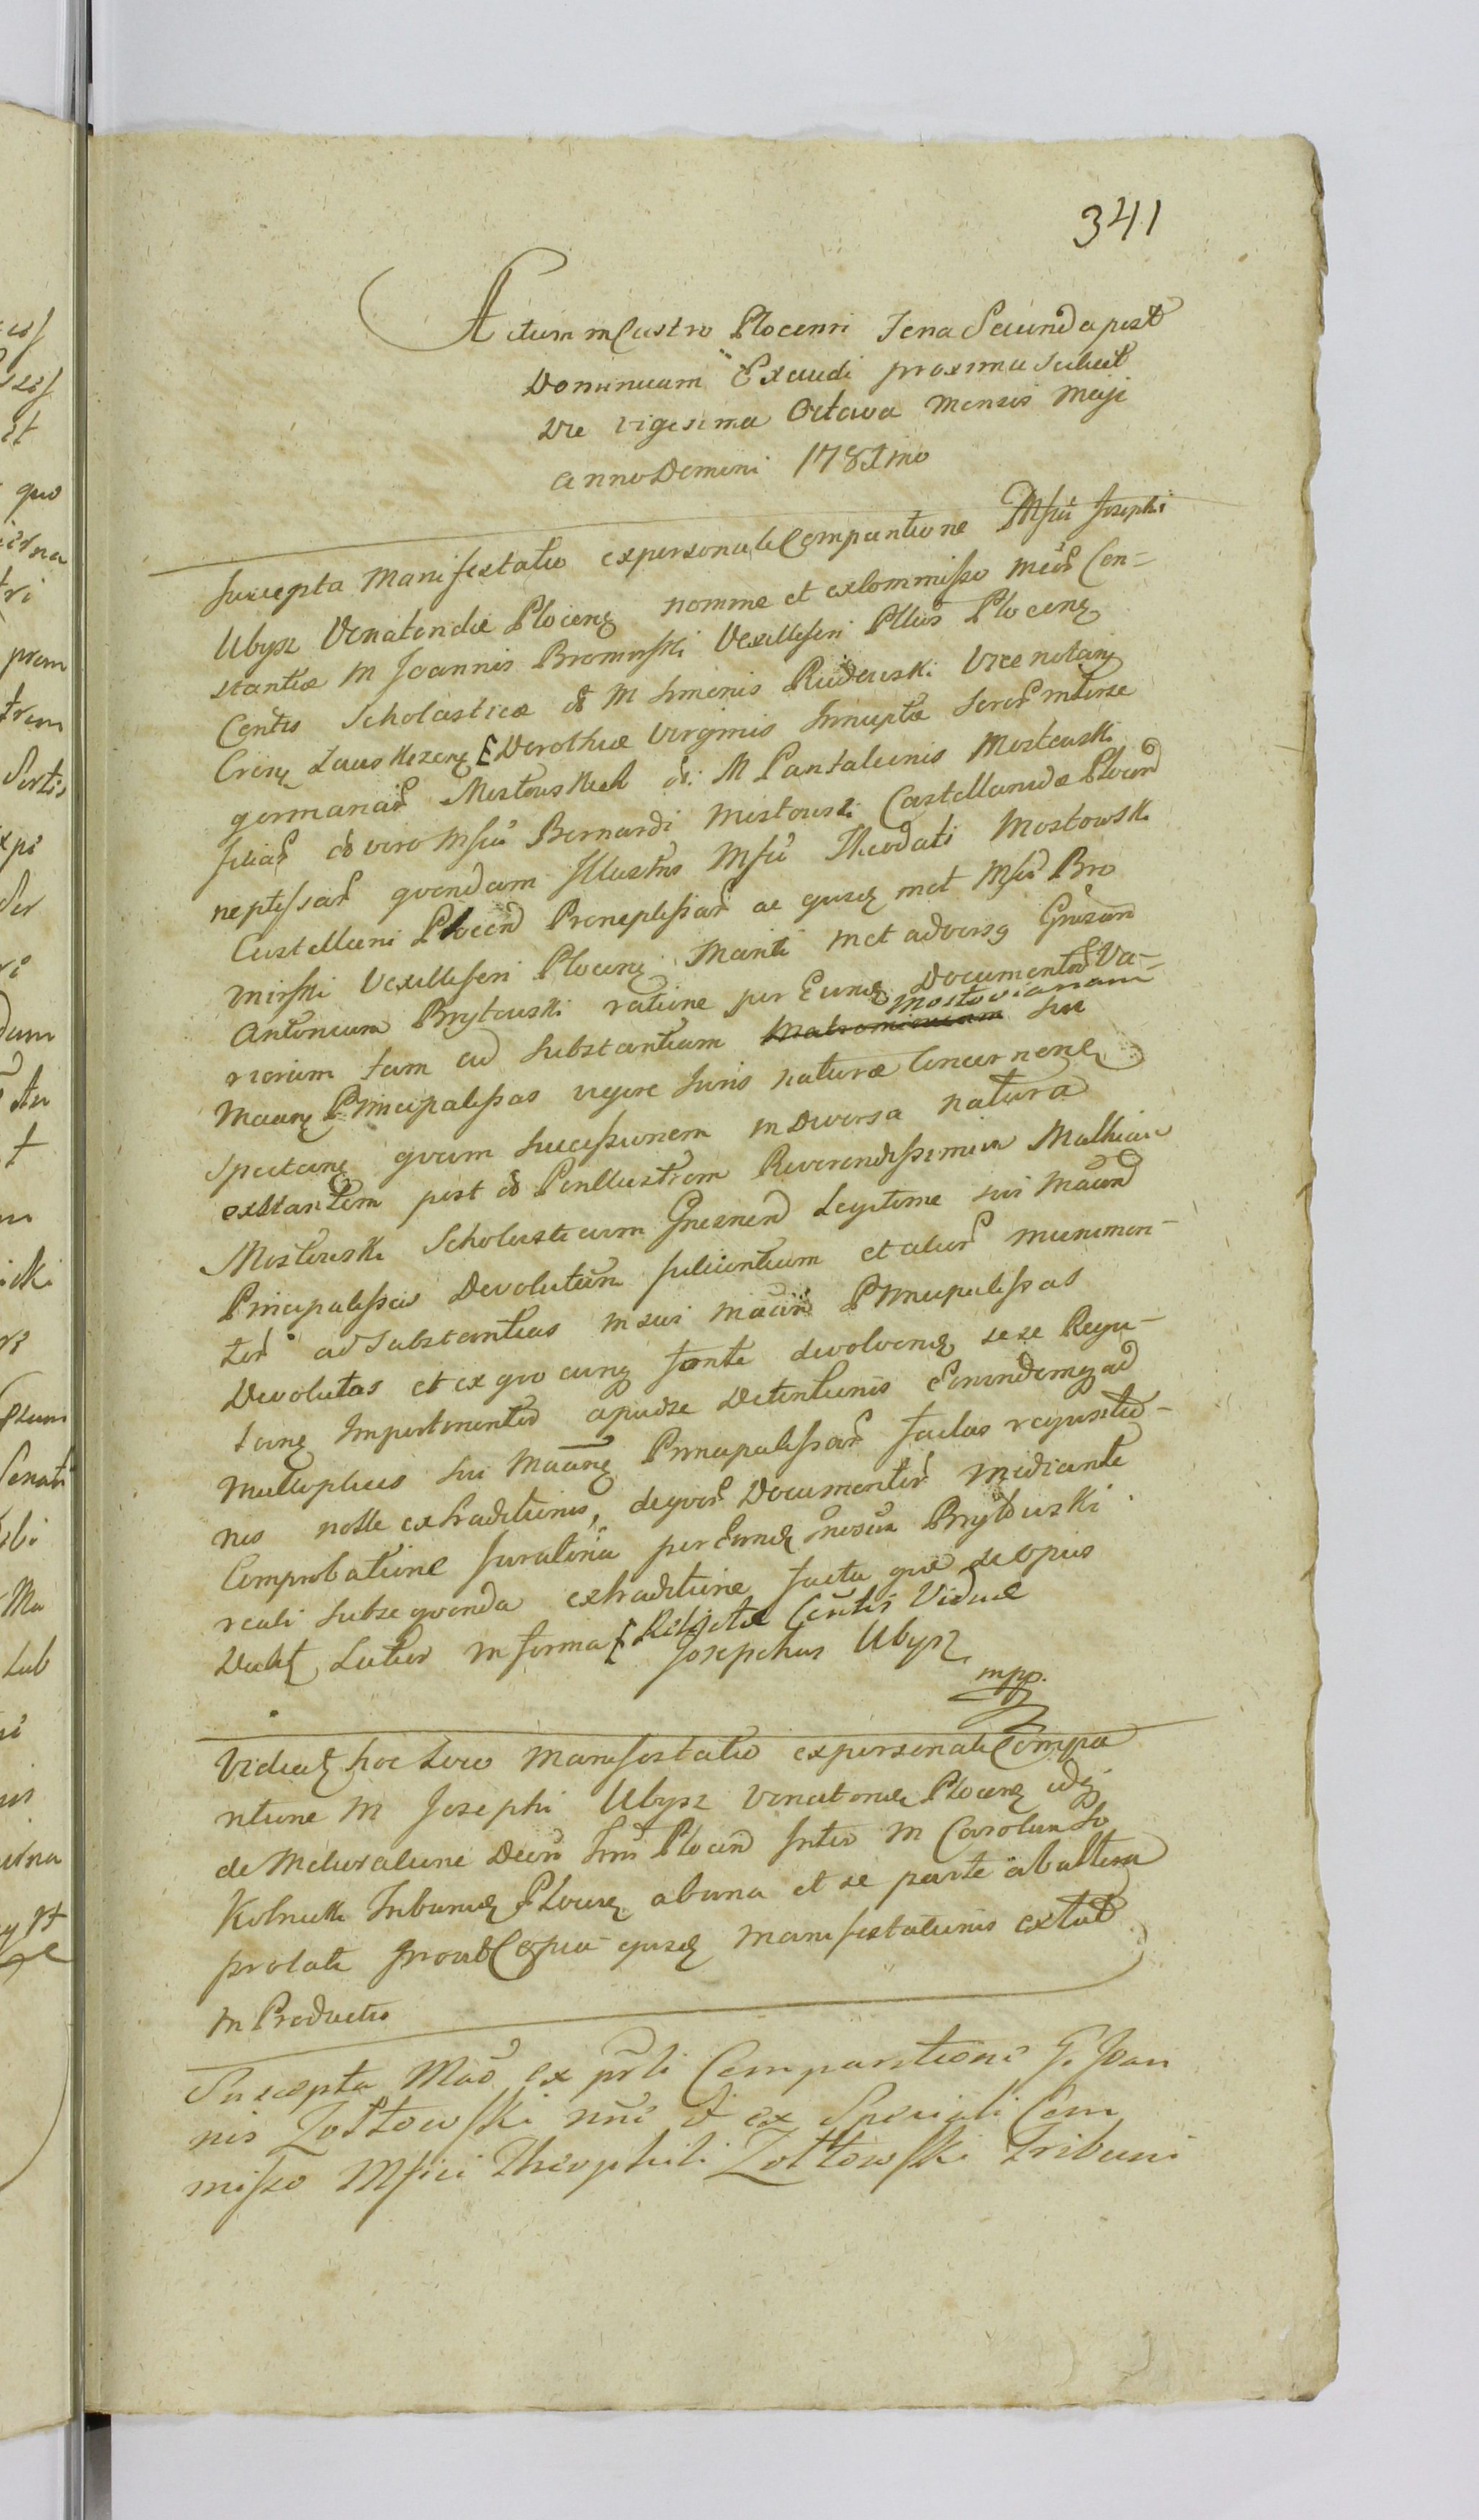 341
Actum in Castro Plocensi Feria Secunda post
Dominicam Exaudi proxima scilicet
Die vigesima Octava Mensis Maji
anno Domini 1781mo
Suscepta Manifestatio ex personali Comparitione Mfici Josephi
Ubysz Venatoridæ Plocen nomine et ex Commisso Mcar Con-
stantiæ M Joannis Bromirski Vexilliferi Pltus Plocen
Contis Scholasticæ M Simonis Rudowski Vice notarij
Crisn Zawskrzen [Dorotheæ Virginis Innuptæ Soror interse
germanar Mostowskich M Pantaleonis Mostowski
filiar vero Mfici Bernardi Mostowski Castellanidæ Plocen
neptissar quondam Illustris Mfici Theodati Mostowski
Castellani Plocen Proneptissar ac ejusd met Mfici Bro
mirski Vexilliferi Plocen Mariti met adversq Gnosum
Antonium Brytowski ratione per Eund Documentor Va-
riorum tam ad Substantiam Mostovianam sui
Maarq Principalissas vigore Juris naturæ Concernen
Spectanq quam Successionem in Diversa natura
exstantem post Perillustrem Reverendissimum Mathiam
Mostowski Scholasticum Gnesnen Legitime sui Maarum
Principalissas Devolutam facientium et alior munimen-
tor ad Substantias in sui Maarum Principalissas
Devolutas et ex quo cunq fonte devolvend sese Regu-
lanq Impertinenter apud se Detentionis Eorundemq ad
multiplices sui Maarq Principalissar factas requisitio-
nes nolle extraditionis, de quor Documentor mediante
Comprobatione Juratoria per Eund Gnosum Brytowski
reali subsequenda extraditione facta que de opus
Videbit Latior in forma [Relictæ Contis Viduæ
Josephus Ubysz
mpp.
Videat hoc Loco Manifestatio ex personali Compa
ritione M Josephi Ubysz Venatorid Plocen idq
de Melioratione Decri Trni Plocen Inter M Carolum So
Kolnicki Tribunid Plocen ab una et se parte ab altera
prolati prout Copia ejusd Manifestationis extat
in Productis
Suscepta Mao ex prli Comparitione G. Joan
nis Zołtowski nne et ex Speciali Com
misso Mfici Theophili Zołtowski Tribuni